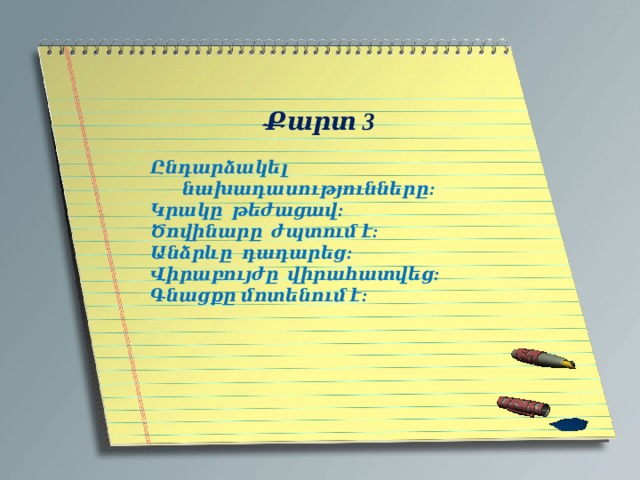 Քարտ 3
Ընդարձակել
նախադասությունները:
Կրակը թեժացավ:
Ծովինարը ժպտում է:
Անձրևը դադարեց:
Վիրաբույժը վիրահատվեց:
Գնացքը մոտենում է: